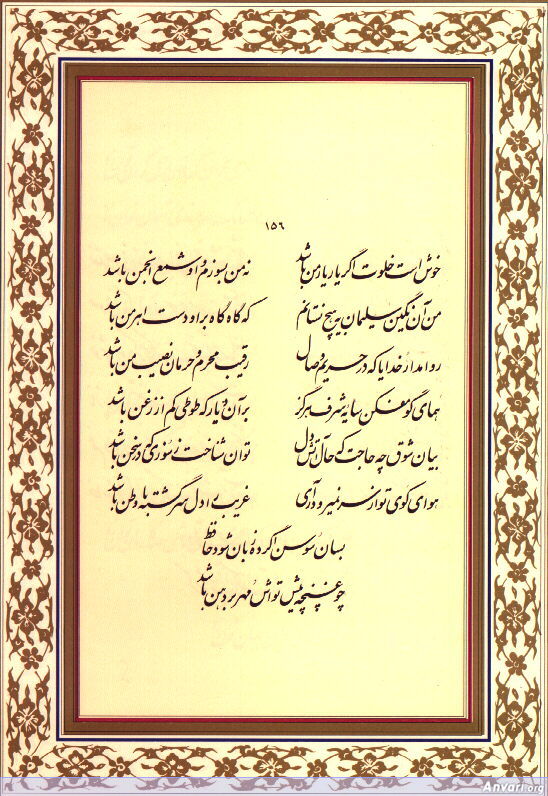 ۱۵۶
خوش است خلوت اگر یار یار من باشد نه من بسوزم و او شمع انجمن باشد
من آن نگین سلیمان به هیچ نستانم که گاه گاه بر او دست اهرمن باشد
روا مدار خدایا که در حریم وصال رقیب محرم و حرمان نصیب من باشد
همای گو مفکن سایه شرف هرگز بر آن دیار که طوطی کم از زغن باشد
بیان شوق چه حاجت که حال آتش دل توان شناخت ز سوزی که در سخن باشد
هوای کوی تو از سر نمیرود آری غریب را دل سرگشته با وطن باشد
بسان سوسن اگر ده زبان شود حافظ
چو غنچه پیش تواش مهر بر دهن باشد
Anvari.org